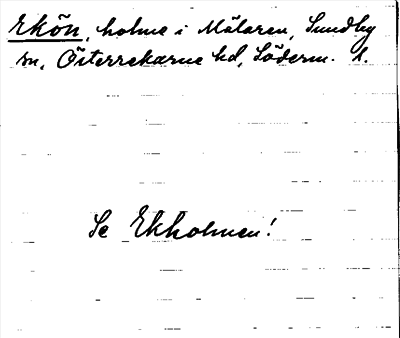 Ekön, holme i Mälaren, Sundby
sn, Österrekarne hd, Söderm. l.
Se Ekholmen!